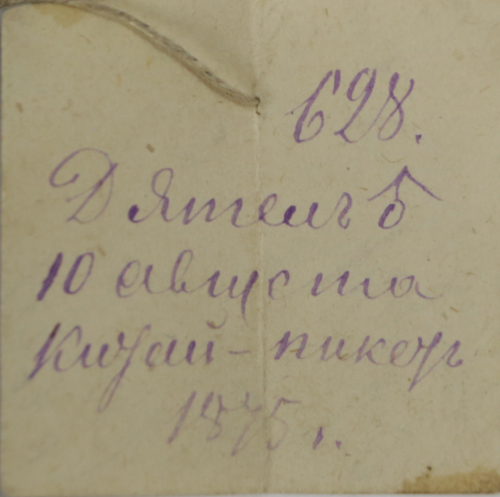 628.
Дятелъ ♂
10 августа
Китай-пикетъ
1875 г.